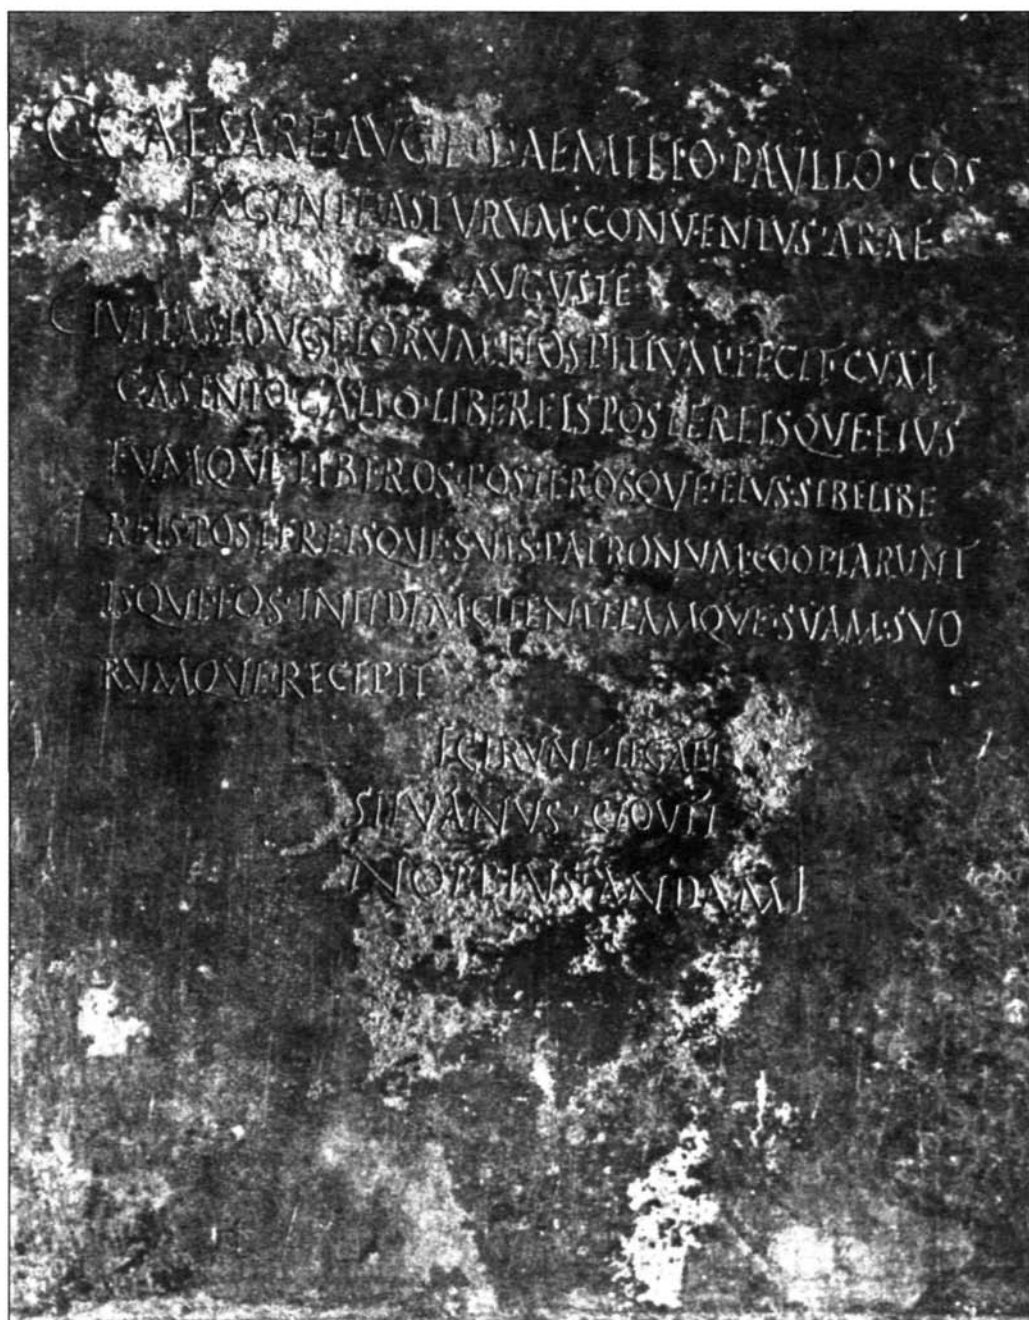 C CAESARE·AVG·F·L·AEMILIO·PAVLLO·COS
EX GENTE·ASTVRVM·CONVENTVS·ARAE
AVGVSTE
CIVITAS·LOVGEIORVM·HOSPITIVM·FECIT·CVM
C ASINIO·GALLO·LIBEREIS·POSTEREISQVE·EIVS
EVMQVE·LIBEROS·POSTEROSQVE·EIVS·SIBE·LIBE
REIS·POSTEREISQVE·SVIS·PATRONVM·COOPTARVNT
ISQVE·EOS·IN·FIDEM·CLIENTELAMQVE·SVAM·SVO
RVMQVE·RECEPIT
EGERVNT·LEGATI
SILVANVS·CLOVTI
NOPPIVS·ANDAMI